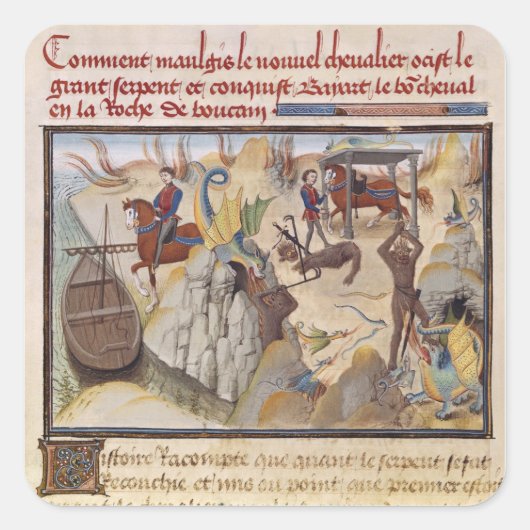 Comment maulgis le nouvel chevalier ocist le
grant serpent et conquist Baiart le bo cheval
en la Roche de boucam
Histoire Racompte que quant le serpent se fut
Recouchie et mis ou point que premier estoit